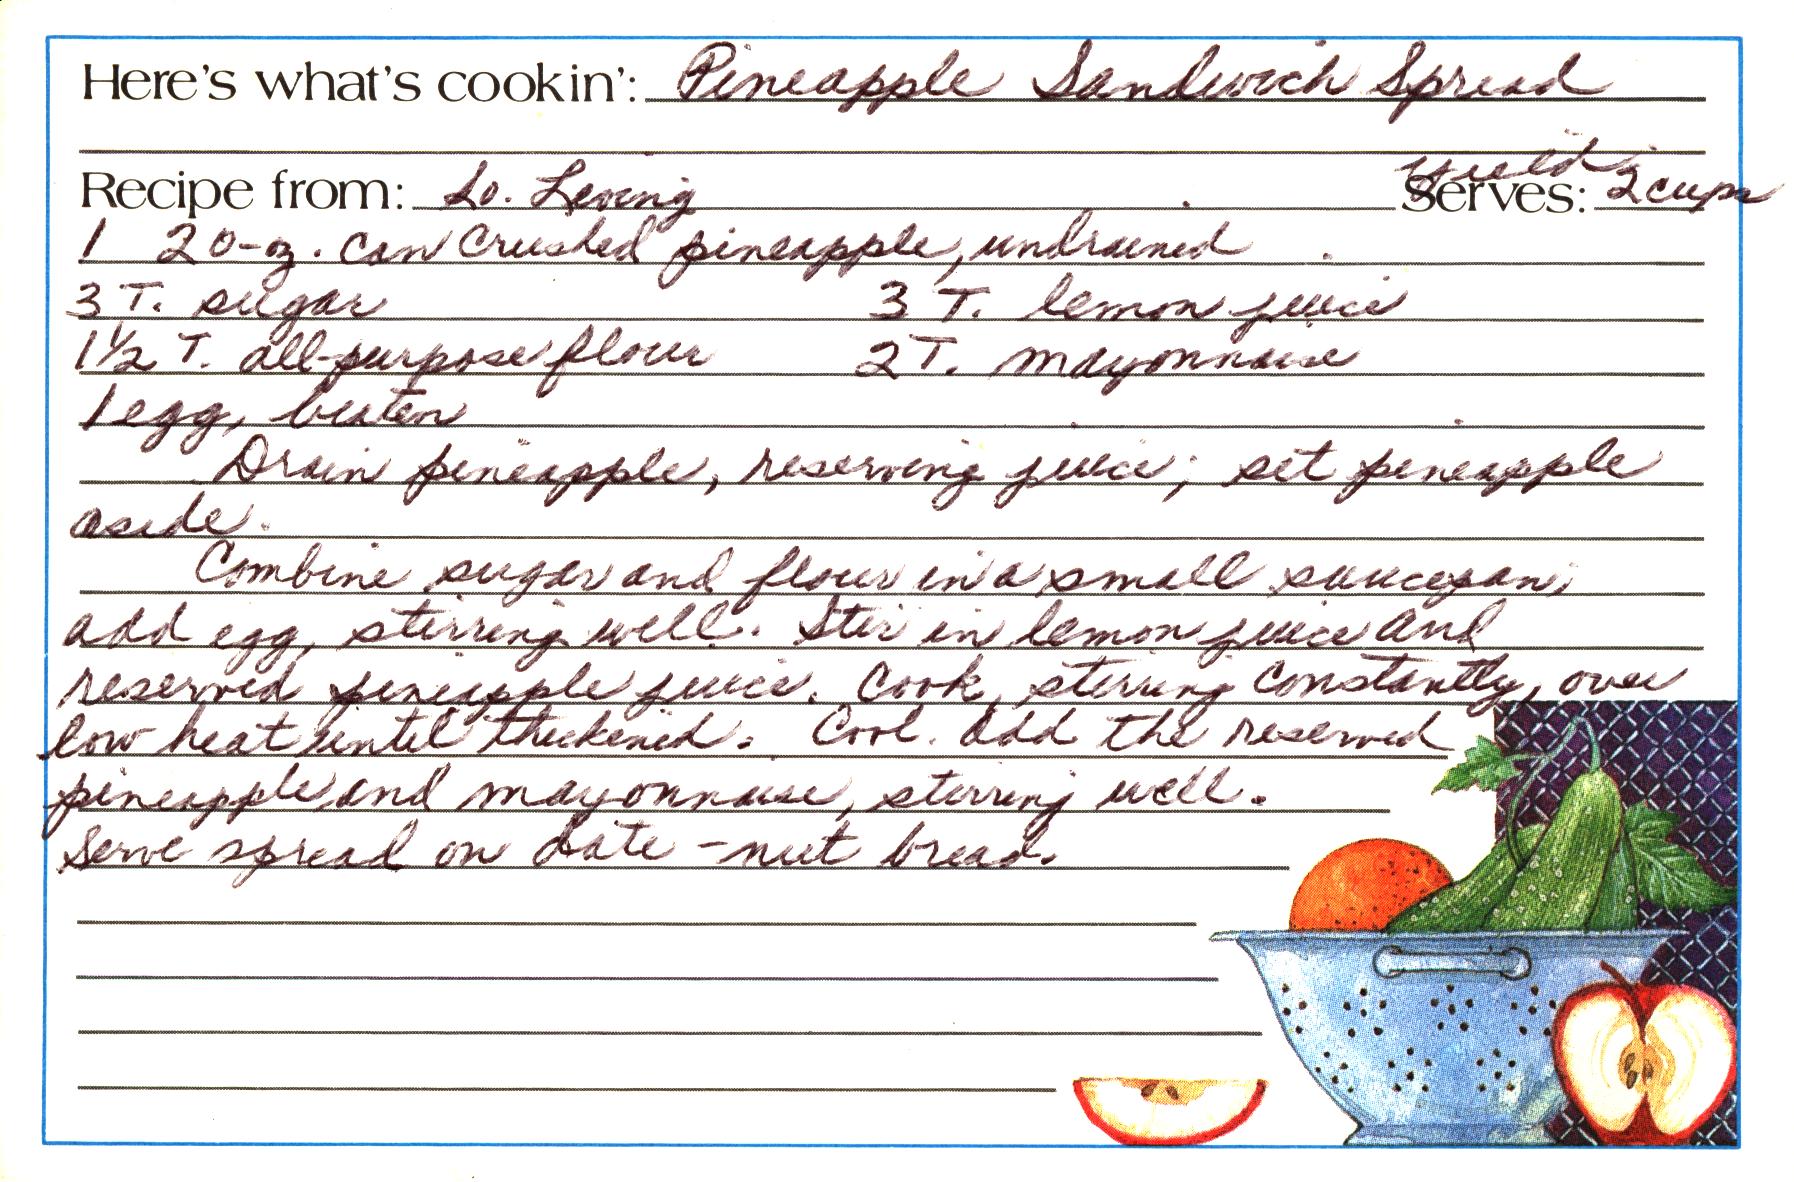 Here's what's cookin': Pineapple Sandwich Spread
Recipe from: So. Living Serves: yield 2 cups
1 20-oz. can crushed pineapple, undrained
3 T. sugar 3 T. lemon juice
1½ T. all-purpose flour 2 T. mayonnaise
1 egg, beaten
Drain pineapple, reserving juice; set pineapple
aside.
Combine sugar and flour in a small saucepan;
add egg, stirring well. Stir in lemon juice and
reserved pineapple juice. Cook, stirring constantly, over
low heat until thickened. Cool. Add the reserved
pineapple and mayonnaise, stirring well.
Serve spread on date-nut bread.